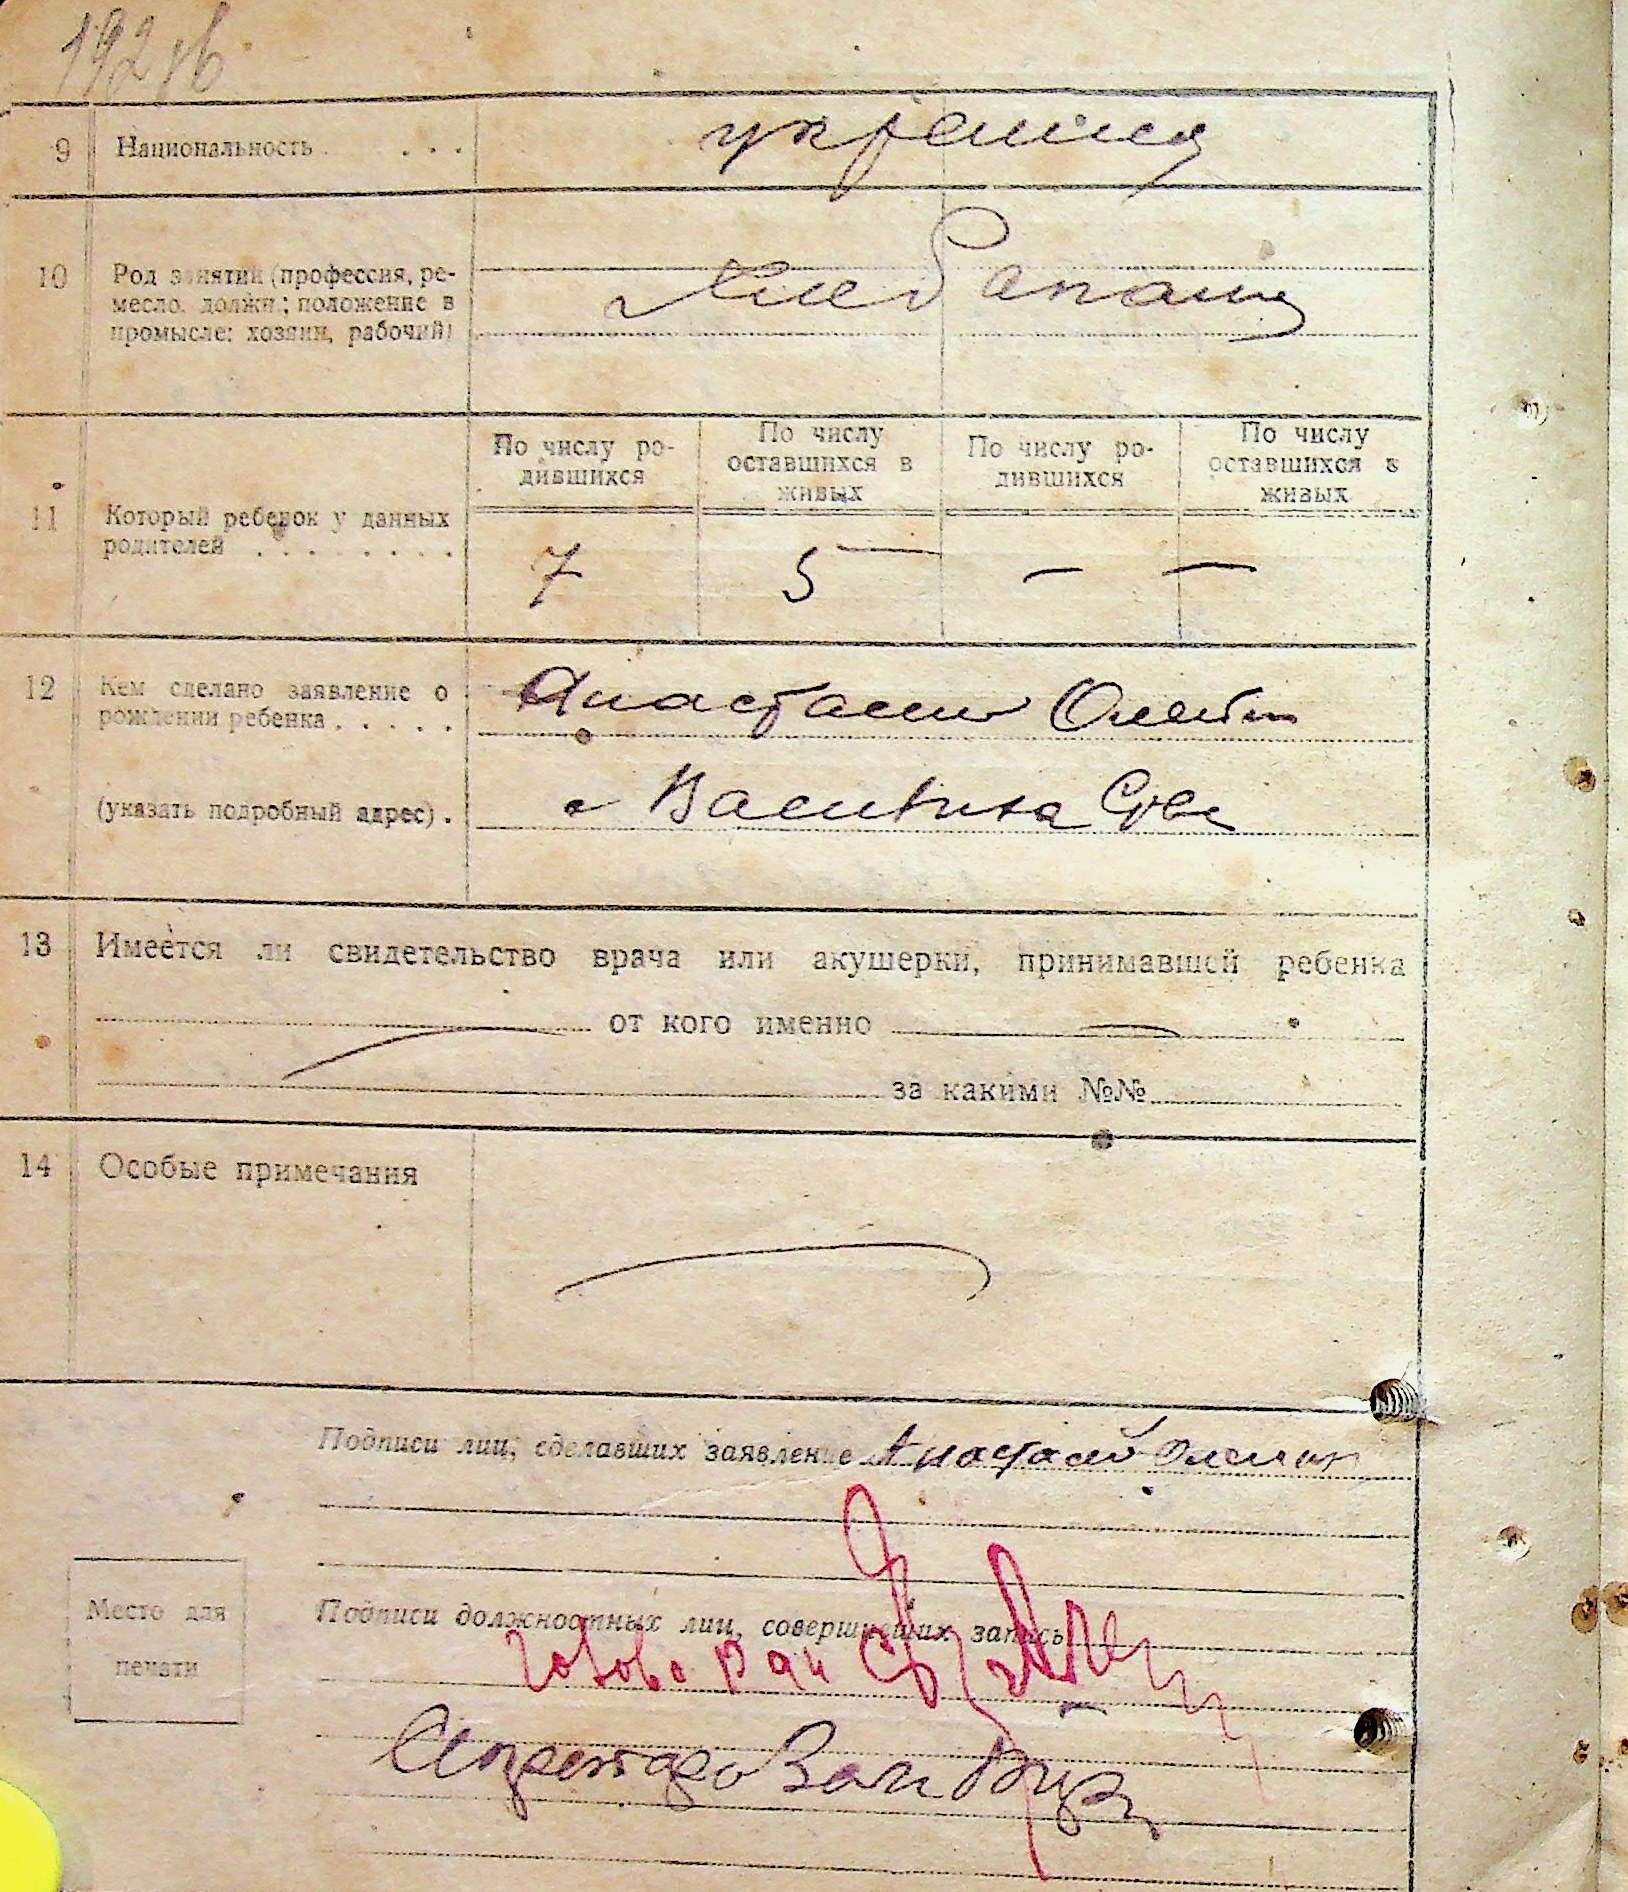 9 Национальность . . . . украинец
10 Род занятий (профессия, ре-
месло, должн.; положение в
промысле: хозяин, рабочий)
Хлебопашец
По числу ро-
дившихся
По числу
оставшихся в
живых
По числу ро-
дившихся
По числу
оставшихся в
живых
11 Который ребенок у данных
родителей . . . . . . . .
7 5 — —
12 Кем сделано заявление о
рождении ребенка . . . . .
Анастасий
(указать подробный адрес) .
13 Имеется ли свидетельство врача или акушерки, принимавшей ребенка
от кого именно
за какими №№
14 Особые примечания
Подписи лиц, сделавших заявление Анастасий
Место для
печати
Подписи должностных лиц, совершивших запись
Голова
Секретарь